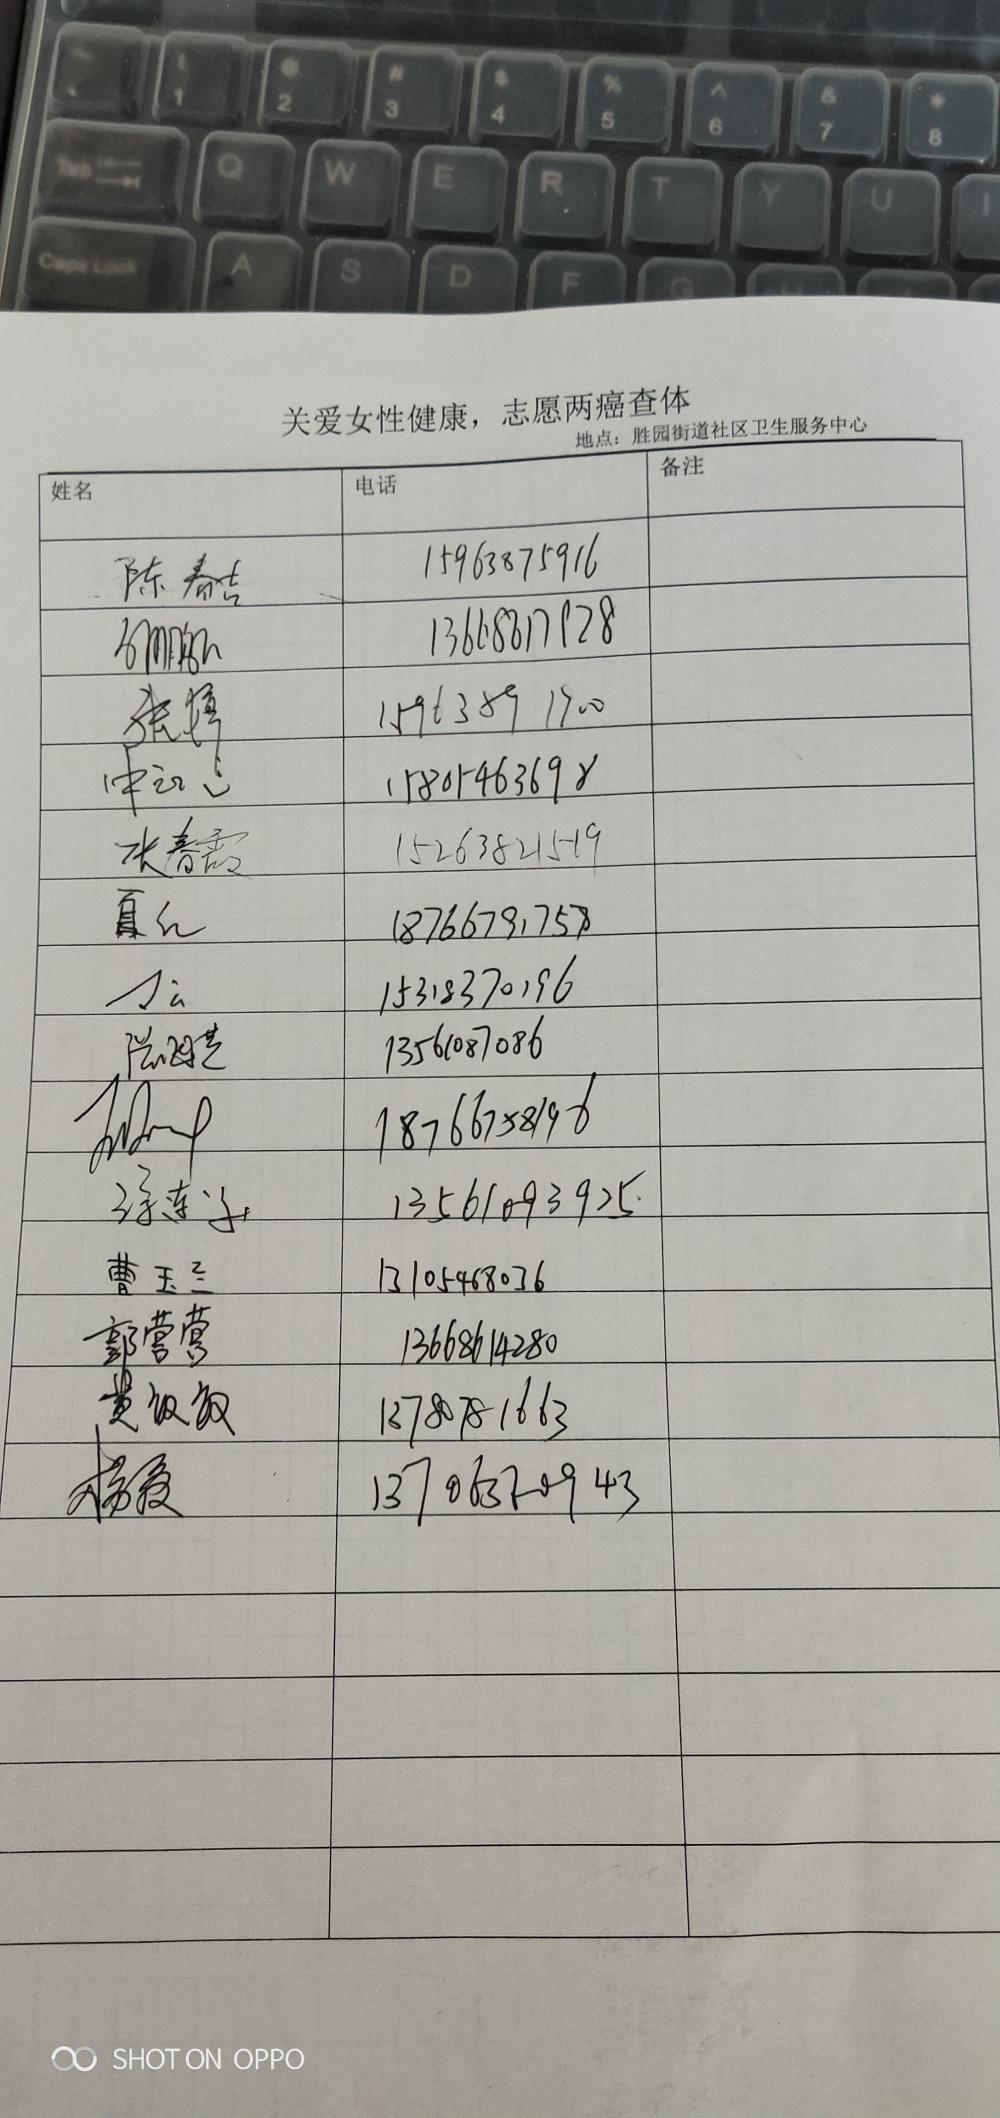 ~ ! @ # $ % ^ & *
` 1 2 3 4 5 6 7 8
Tab Q W E R T Y U I
Caps Lock A S D F G H
关爱女性健康，志愿两癌查体
地点：胜园街道社区卫生服务中心
姓名 电话 备注
陈春吉 15963875916
13668617828
张 15963891900
15805463698
张春霞 15263821519
夏红 18766791758
15318370196
13561087086
18766758196
徐 13561093925
曹玉兰 13105468036
郭营营 13668614280
黄敏敏 13780781663
杨 13706370943
SHOT ON OPPO